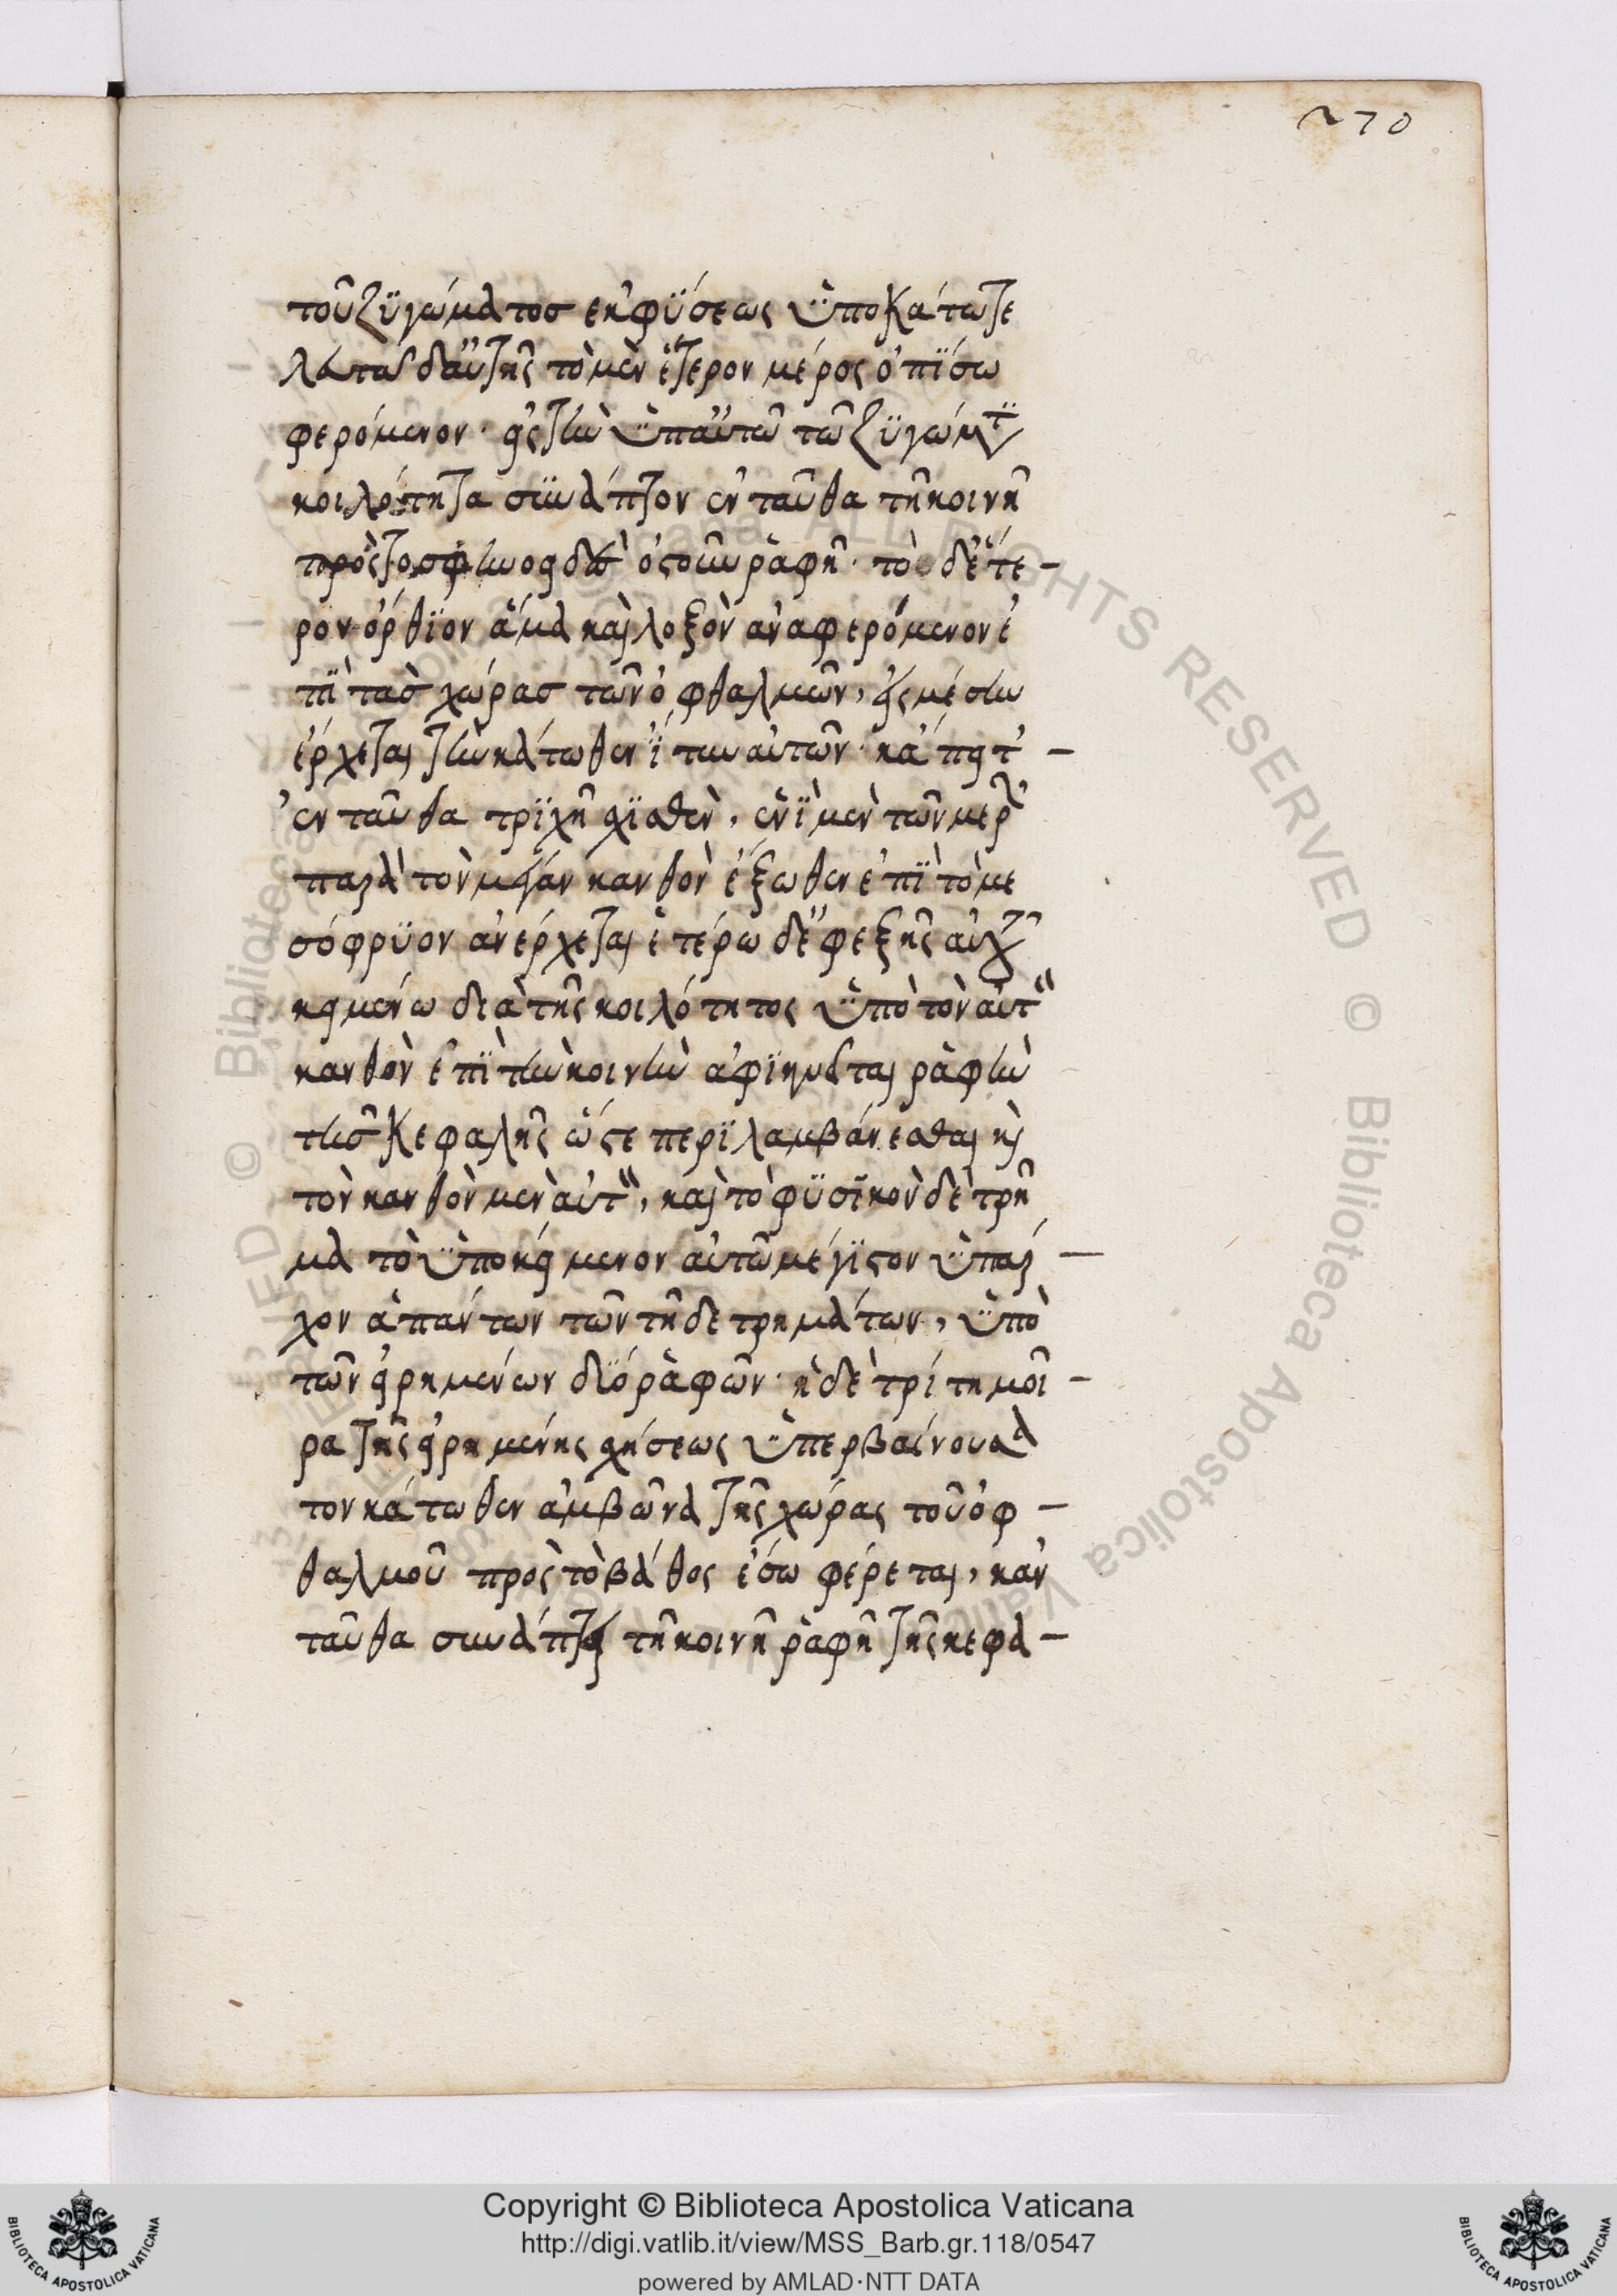 270
τοῦ ζϋγώματοσ εκφΰσεως ὑποκάτωτε
λάταδ' αὔτης τὸ μὲν ἕτερον μέρος ὀπΐσω
φερόμενον· εἰς τὴν ὑπ' αὐτῶ τῶ ζϋγώμτ
κοιλότητα συνάπτον ἐνταῦθα τῆ κοινῆ
πρὸς το σφηνοειδὲς ὀστοῦν ῥαφῆ· τὸ δ' ἕτε-
ρον ὄρθϊον ἅμα καὶ λοξὸν ἀναφερόμενον ἐ
πῒ τὰσ χώρασ τῶν ὀφθαλμῶν, εἰς μέσην
ἔρχεται τὴν κάτωθεν ἴτυν αὐτῶν· κἄπειτ' -
ἐνταῦθα τρϊχῆ σχϊσθὲν, ἑνῒ μὲν τῶν μερ
παρὰ τὸν μέγαν κανθὸν ἔξωθεν ἐπῒ τὸ με
σόφρϋον ἀνέρχεται ἑτέρω δ' ἐφεξῆς αὐτῶ
κειμένω δια τῆς κοιλότητος ὑπὸ τὸν αὐτ
κανθὸν ἐπῒ τὴν κοινὴν ἀφϊκνεῖται ῥαφὴν
τῆσ κεφαλῆς ὥστε περϊλαμβάνεσθαι κὶ
τὸν κανθὸν μὲν αὐτ, καὶ τὸ φϋσϊκὸν δὲ τρῆ
μα τὸ ὑποκείμενον αὐτῶ μέγϊστον ὑπάρ -
χον ἁπάντων τῶν τῆδε τρημάτων, ὑπὸ
τῶν εἰρημένων δϋό ῥαφῶν· ἡ δὲ τρίτη μοῖ -
ρα τῆς εἰρημένης σχίσεως ὑπερβαίνουσα
τον κάτωθεν ἄμβωνα τῆς χώρας τοῦ ὀφ -
θαλμοῦ πρὸς τὸ βάθος ἔσω φέρεται, κἀν
ταῦθα συνάπτει τῆ κοινῆ ῥαφῆ τῆς κεφα -
© Biblioteca Apostolica Vaticana ALL RIGHTS RESERVED
Copyright © Biblioteca Apostolica Vaticana
http://digi.vatlib.it/view/MSS_Barb.gr.118/0547
powered by AMLAD·NTT DATA
BIBLIOTECA APOSTOLICA VATICANA
BIBLIOTECA APOSTOLICA VATICANA